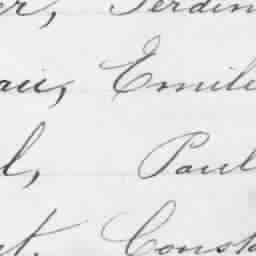 er, Ferdin
aii, Emile
l, Paul
et. Const